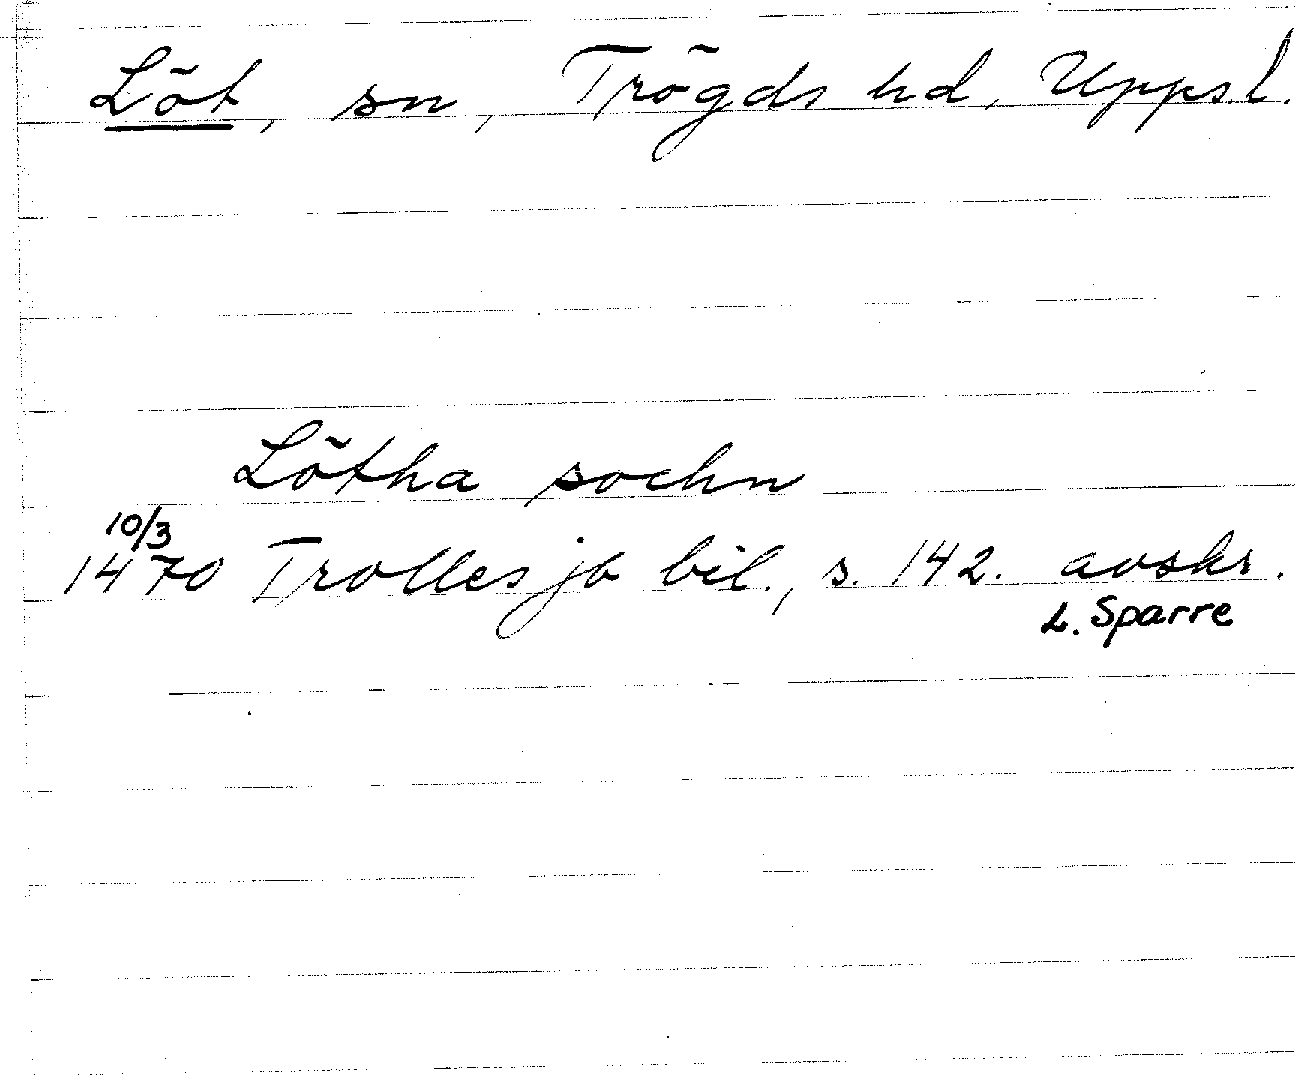 Löt, sn, Trögds hd, Uppsl.
Lötha sochn
10/3
1470 Trolles jb bil., s. 142. avskr.
L. Sparre